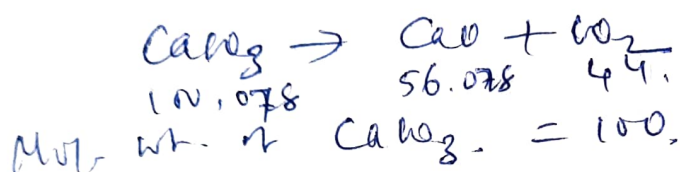 CaCO3 → CaO + CO2
100.078 56.078 44.
Mol. wt. of CaCO3. = 100.